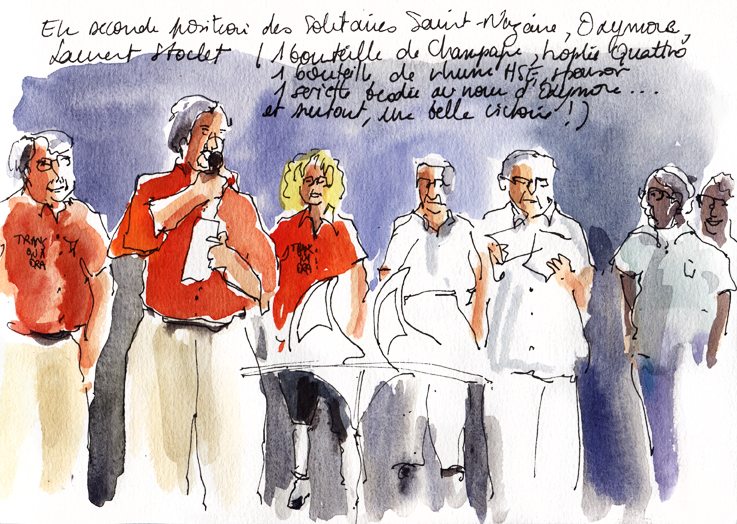 En seconde position des Solitaires Saint-Nazaire, Oxymore,
Laurent Stoclet ( 1 bouteille de Champagne, Quattro
1 bouteille de rhum HSE, sponsor
1 brodée au nom d'Oxymore...
et surtout, une belle victoire !)
TRANS
QUA
DRA
TRANS
QUA
DRA